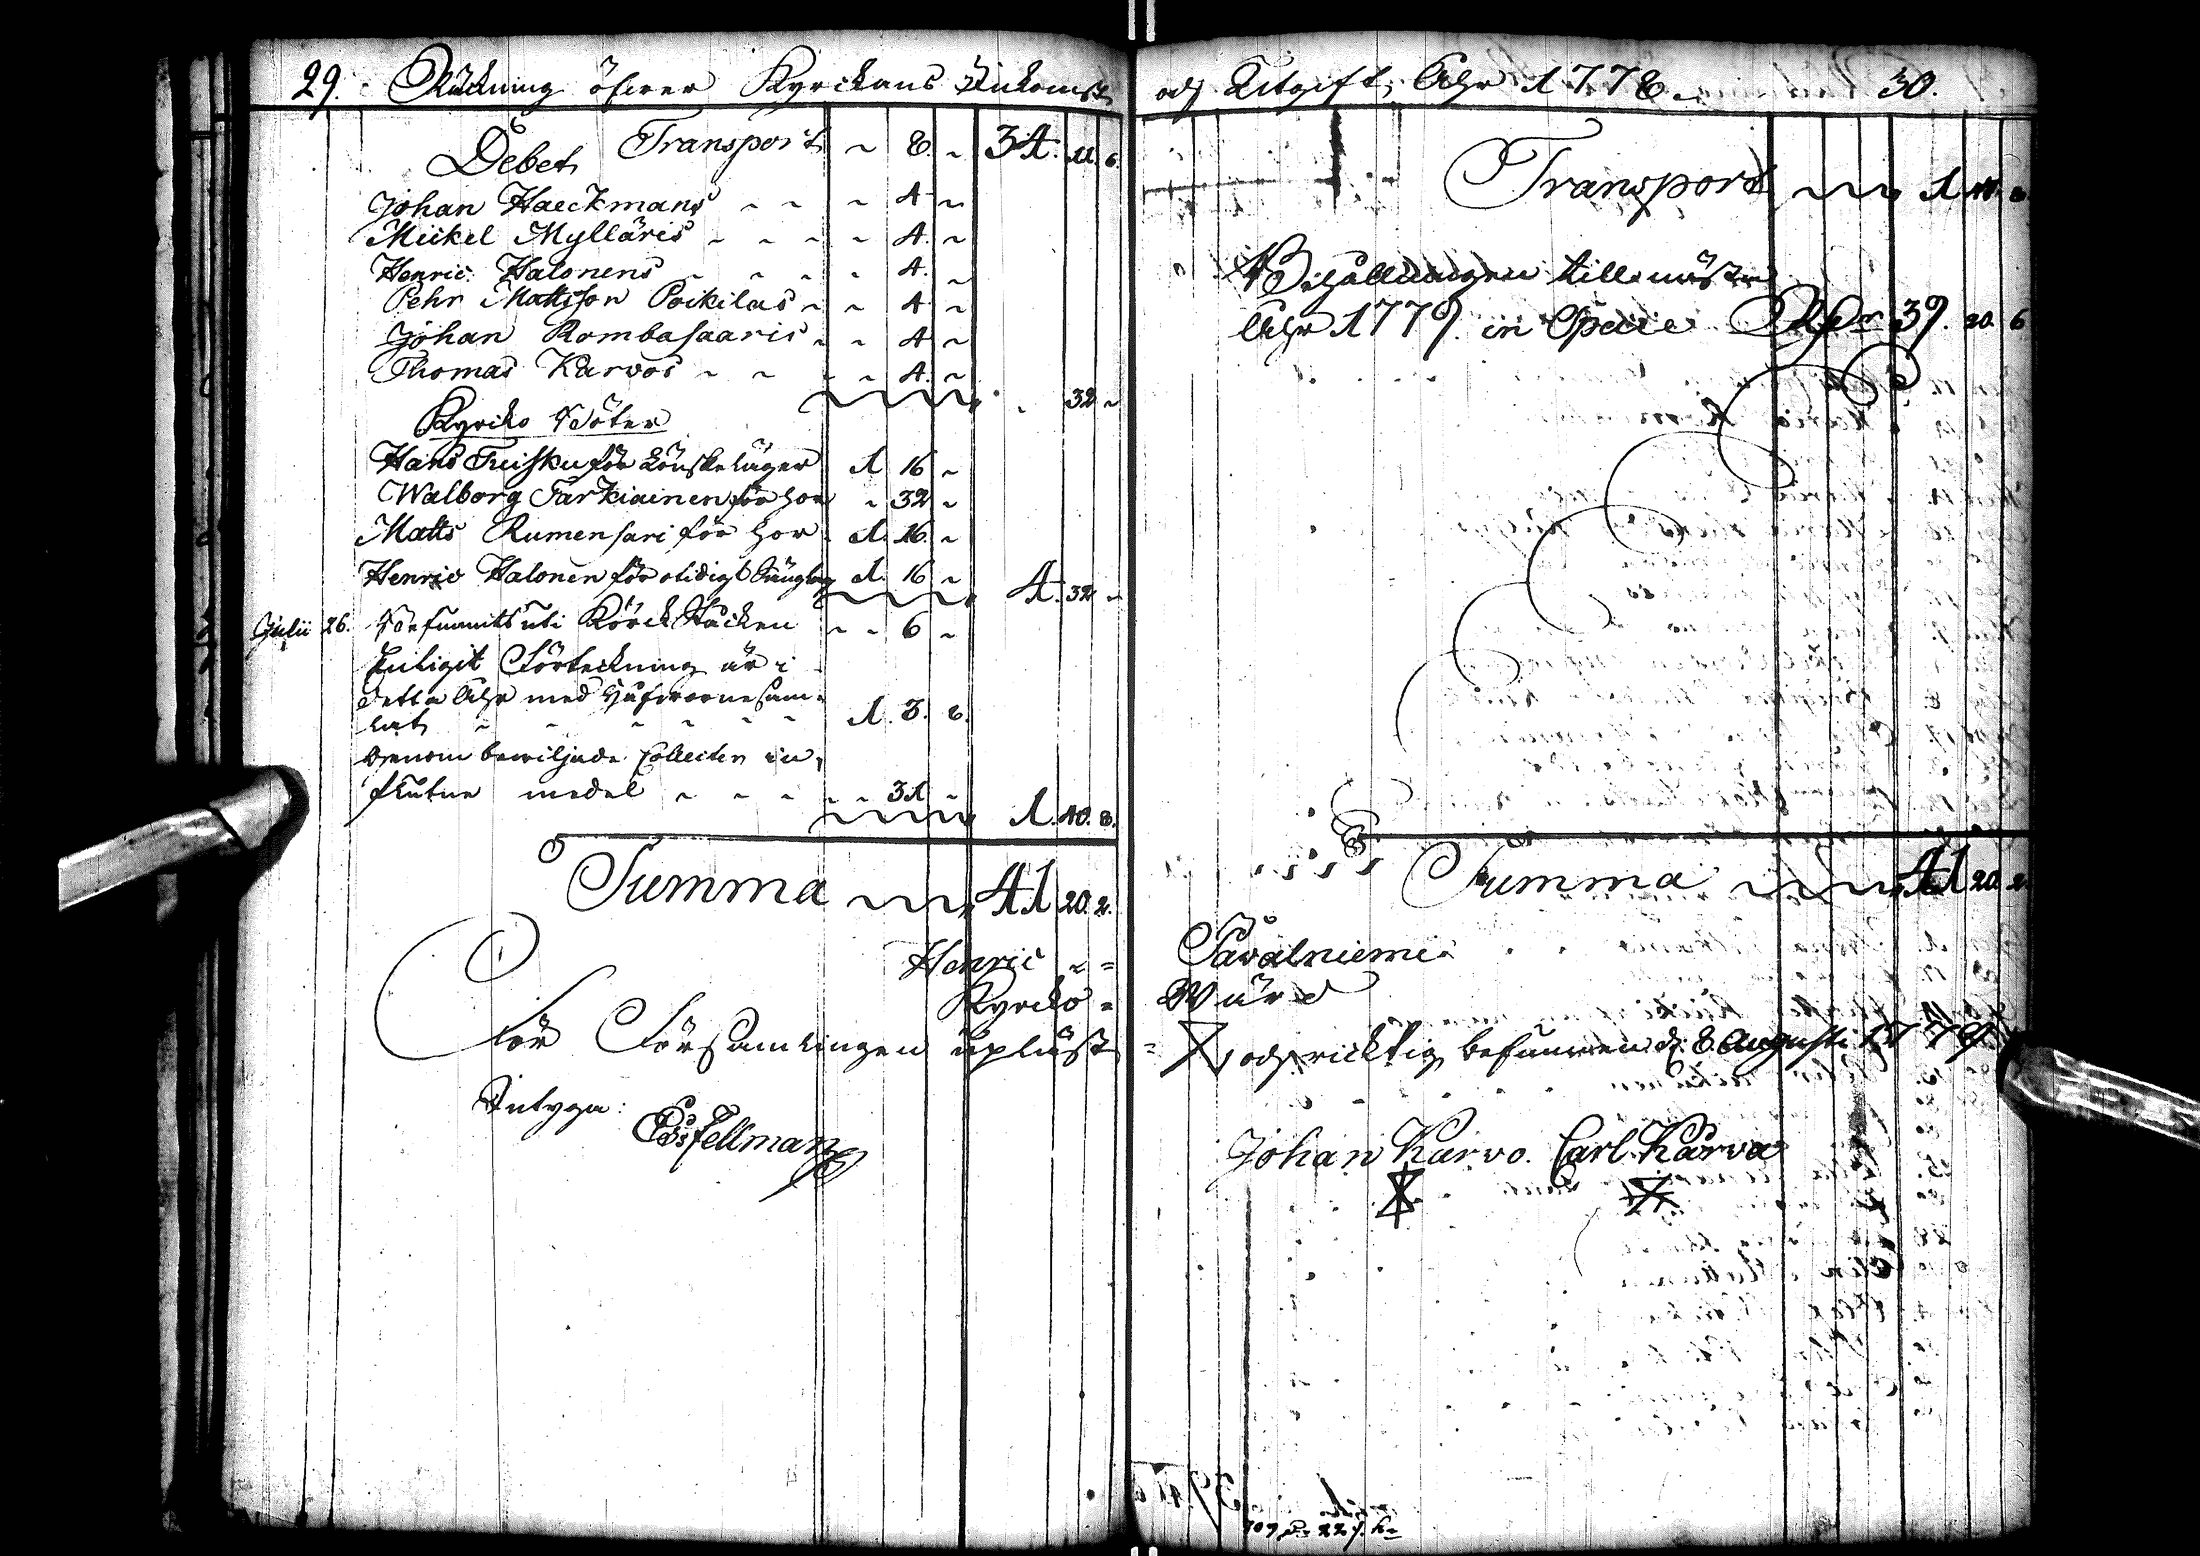 29. Räckning öfwer Kyrckans Inkomst
Debet Transport ~ 8. ~ 34. 11. 6.
Johan Haeckmans ~ ~ ~ 4 ~
Mickel Mylläris ~ ~ ~ ~ 4. ~
Henric Halonens ~ ~ ~ ~ 4. ~
Pehr Mattsson Poikilas ~ ~ 4 ~
Johan Rombasaaris ~ ~ 4 ~
Thomas Karvos ~ ~ ~ ~ 4. ~
32 ~
Kyrcko Böter
Hans Teisku för Lönskeläger 1 16 ~
Walborg Tarkiainen för hor ~ 32 ~
Matts Rumensari för hor 1. 16 ~
Henric Halonen för otidigt Sänglag 1. 16 ~ 4. 32 ~
Julii 26. Befunnits uti Körck Stäcken ~ ~ 6 ~
Enligit Förteckning är i
detta Åhr med Håfwarne sam-
lat ~ ~ ~ ~ ~ 1. 3. 8.
Genom bewiljade Collecter in-
flutne medel ~ ~ ~ ~ ~ 31 ~ 1. 40. 8.
Summa 41 20. 2.
Henric
Kyrcko =
För Församlingen upläst
Intyga:
Es. Fellman
och Utgift Åhr 1778 30.
Transport 1
Behållningen till näste
Åhr 1779. in Specie Rdr 39. 20. 6
Summa 41 20. 2.
Savalniemi
Wärd
och ricktig befunnen d. 8 Augusti 1779
Johan Karvo. Carl Karva